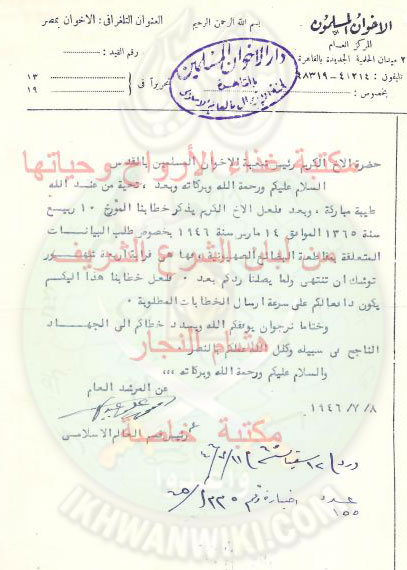 الاخوان المسلمون
للمركز العام
٢ ميدان الحلمية الجديدة بالقاهرة
تليفون : ٤١٢١٤ - ٩٨٣١٩
بخصوص :
بسم الله الرحمن الرحيم
العنوان التلغرافى : الاخوان بمصر
رقم القيد :
تحريرا فى
١٣
١٩
دار الاخوان المسلمين
بالقاهرة
حضرة الاخ الكريم رئيس جمعية الاخوان المسلمين بالقدس
السلام عليكم ورحمة الله وبركاته وبعد ، تحية من عند الله
طيبة مباركة ، وبعد فلعل الاخ الكريم يذكر خطابنا المؤرخ ١٠ ربيع
سنة ١٣٦٥ الموافق ١٤ مارس سنة ١٩٤٦ بخصوص طلب البيانات
المتعلقة بمقاطعة البضائع الصهيونية ، وها هى قرابة أربعة شهور
توشك ان تنتهى ولما يصلنا ردكم بعد ٠ فلعل خطابنا هذا اليكم
يكون دافعا لكم على سرعة ارسال الخطابات المطلوبة ٠
وختاما نرجو ان يوفقكم الله ويسدد خطاكم الى الجهاد
الناجح فى سبيله وكلل الله لكم النصر
والسلام عليكم ورحمة الله وبركاته ،،،
عن المرشد العام
١٩٤٦/٧/٨
رئيس قسم العالم الاسلامى
ورد
عدد
١٥٥
مكتبة غذاء الأرواح وحياتها
من لبان الشرع الشريف
هشام النجار
مكتبة خاصة
وأعدوا
IKHWANWIKI.COM